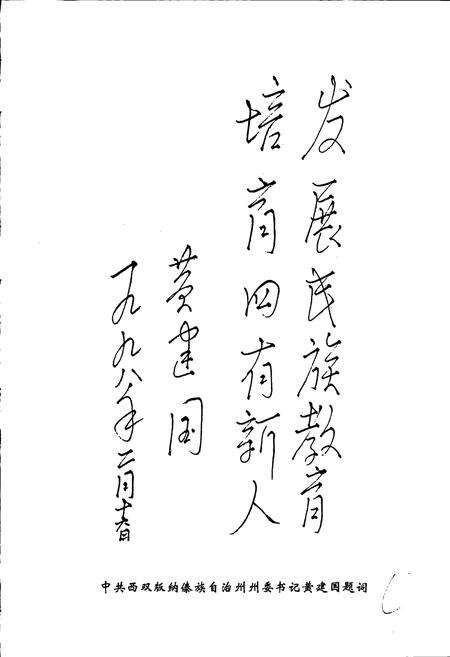 发展民族教育
培育四有新人
黄建国
一九九八年二月十六日
中共西双版纳傣族自治州州委书记黄建国题词